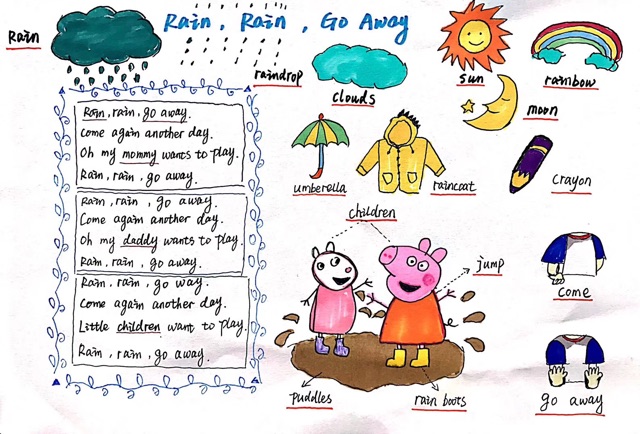 Rain
Rain, Rain, Go Away
raindrop
clouds
sun
rainbow
moon
Rain, rain, go away.
Come again another day.
Oh my mommy wants to play.
Rain, rain, go away.
Rain, rain, go away.
Come again another day.
Oh my daddy wants to play.
Rain, rain, go away.
Rain, rain, go way.
Come again another day.
Little children want to play.
Rain, rain, go away.
umberella
raincoat
crayon
children
jump
come
puddles
rain boots
go away